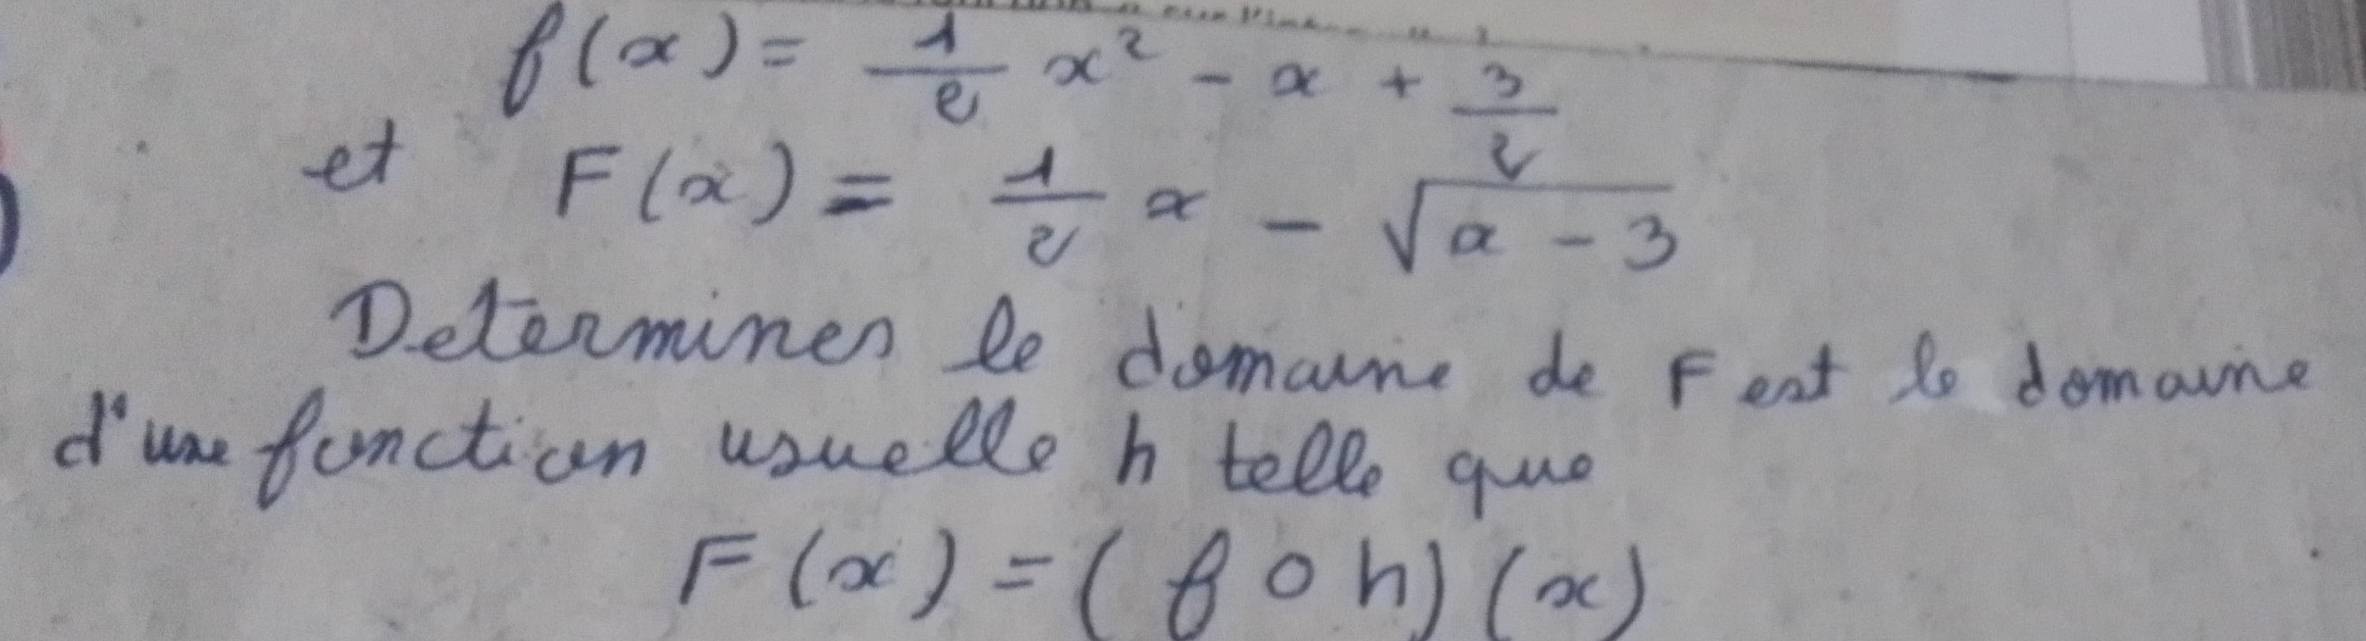 f(x) = 1/2 x² - x + 3/2
et F(x) = 1/2 x - √(x - 3)
Determiner le domaine de F est le domaine
d'une fonction usuelle h telle que
F(x) = (f o h)(x)